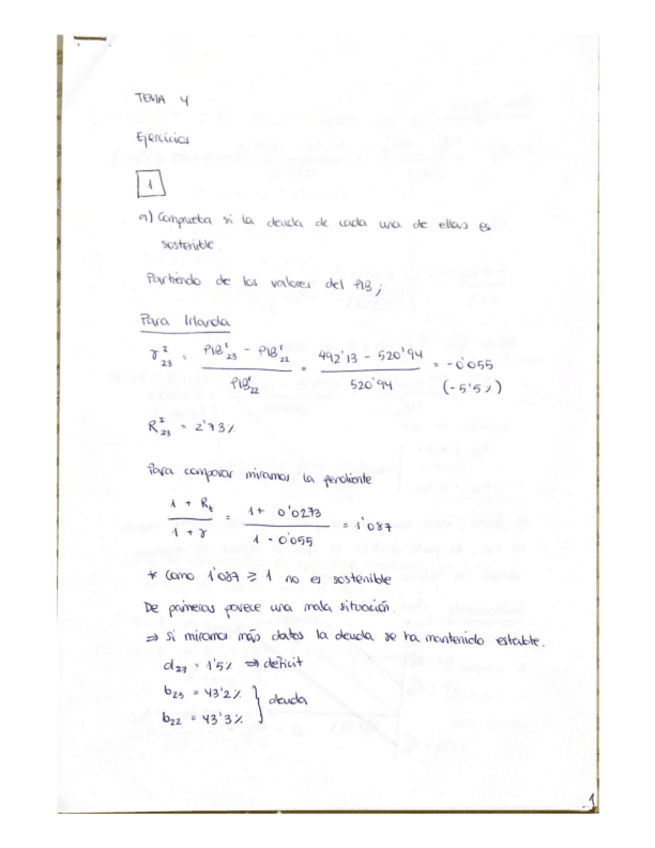 TEMA 4
Ejercicios
1
a) Comprueba si la deuda de cada una de ellas es
sostenible.
Partiendo de los valores del PIB;
Para Irlanda
γ^I_23 = (PIB^r_23 - PIB^r_22) / PIB^r_22 = (492'13 - 520'94) / 520'94 = -0'055
(-5'5%)
R^I_23 = 2'73%
Para comparar miramos la pendiente
(1 + R_t) / (1 + γ) = (1 + 0'0273) / (1 - 0'055) = 1'087
* Como 1'087 ≥ 1 no es sostenible
De primeras parece una mala situación.
⇒ Si miramos más datos la deuda se ha mantenido estable.
d_23 = 1'5% ⇒ déficit
b_23 = 43'2% } deuda
b_22 = 43'3%
1